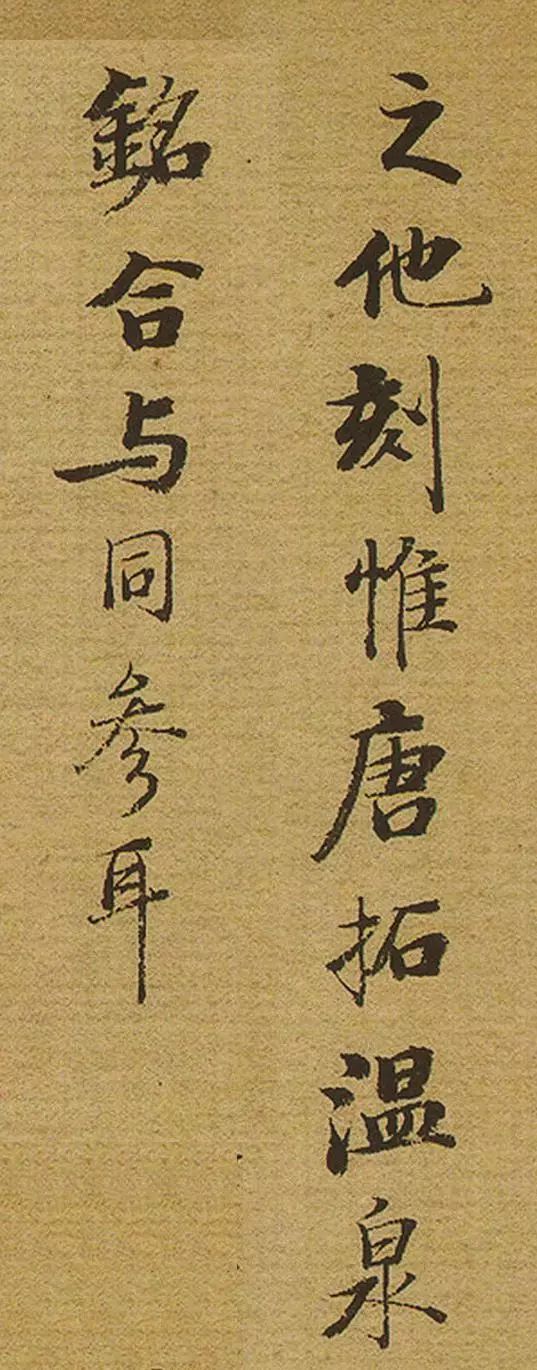 之他刻惟唐拓温泉
銘合与同参耳